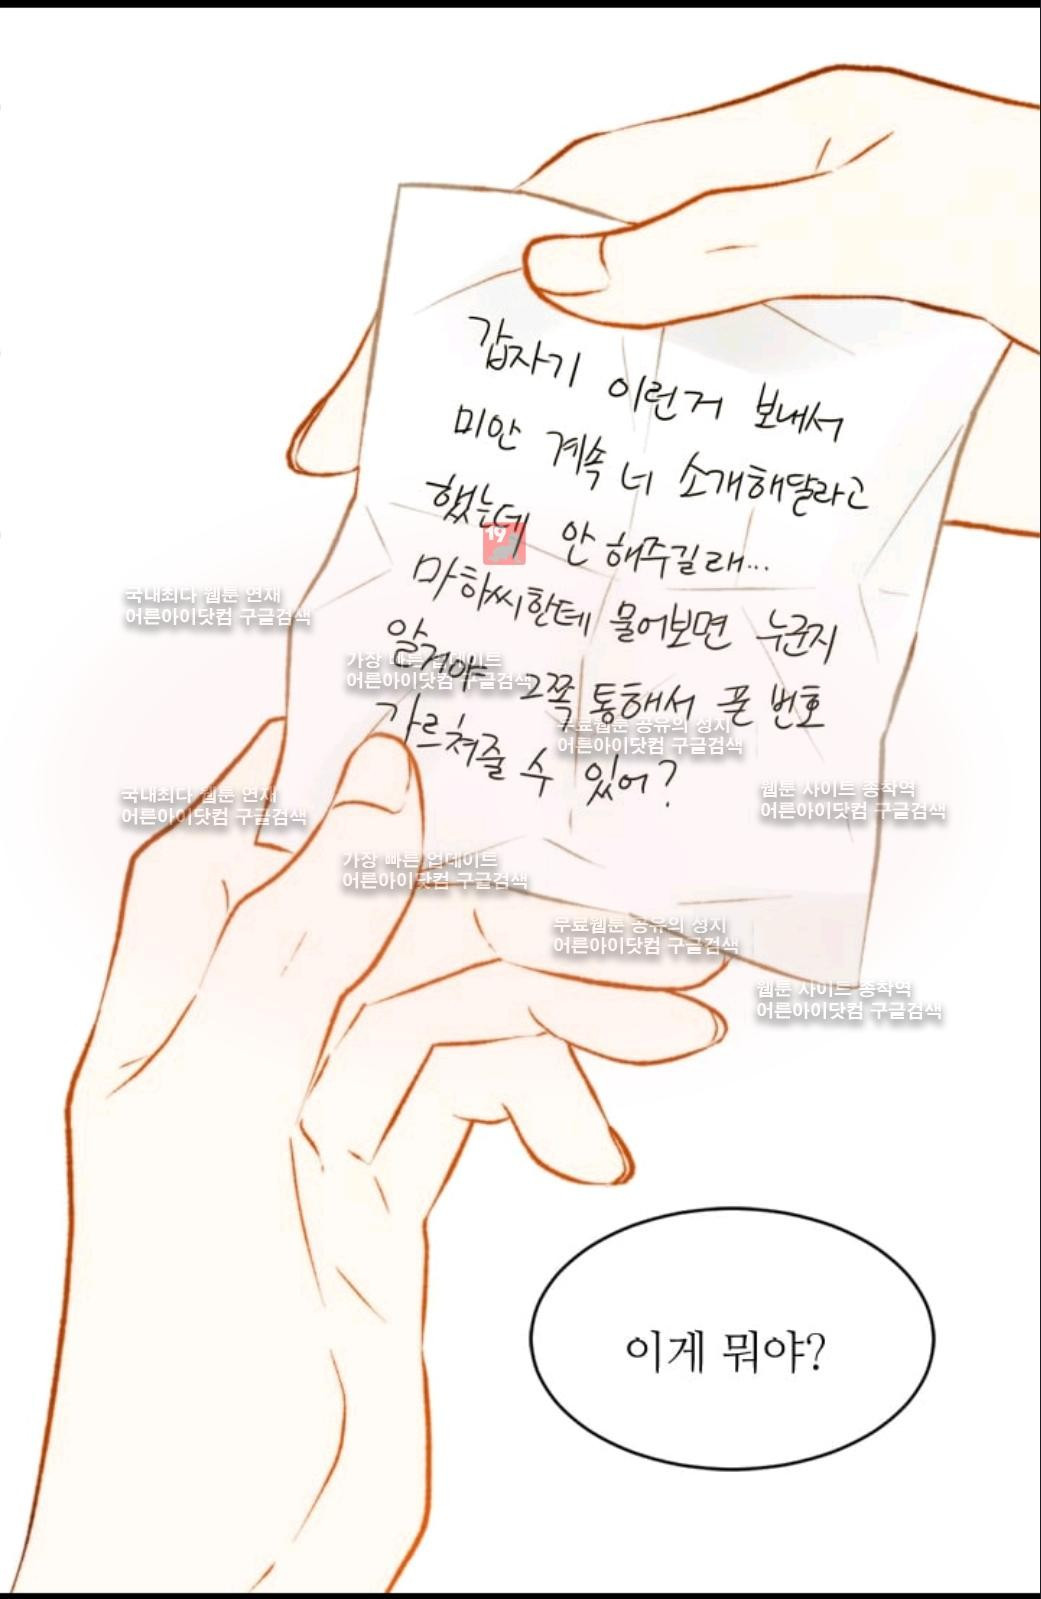 갑자기 이런거 보내서
미안 계속 너 소개해달라고
했는데 안 해주길래...
마하씨한테 물어보면 누군지
알거야 그쪽 통해서 폰 번호
가르쳐줄 수 있어?
19
국내최다 웹툰 연재
어른아이닷컴 구글검색
가장 빠른 업데이트
어른아이닷컴 구글검색
무료웹툰 공유의 성지
어른아이닷컴 구글검색
웹툰 사이트 종착역
어른아이닷컴 구글검색
국내최다 웹툰 연재
어른아이닷컴 구글검색
가장 빠른 업데이트
어른아이닷컴 구글검색
무료웹툰 공유의 성지
어른아이닷컴 구글검색
웹툰 사이트 종착역
어른아이닷컴 구글검색
이게 뭐야?